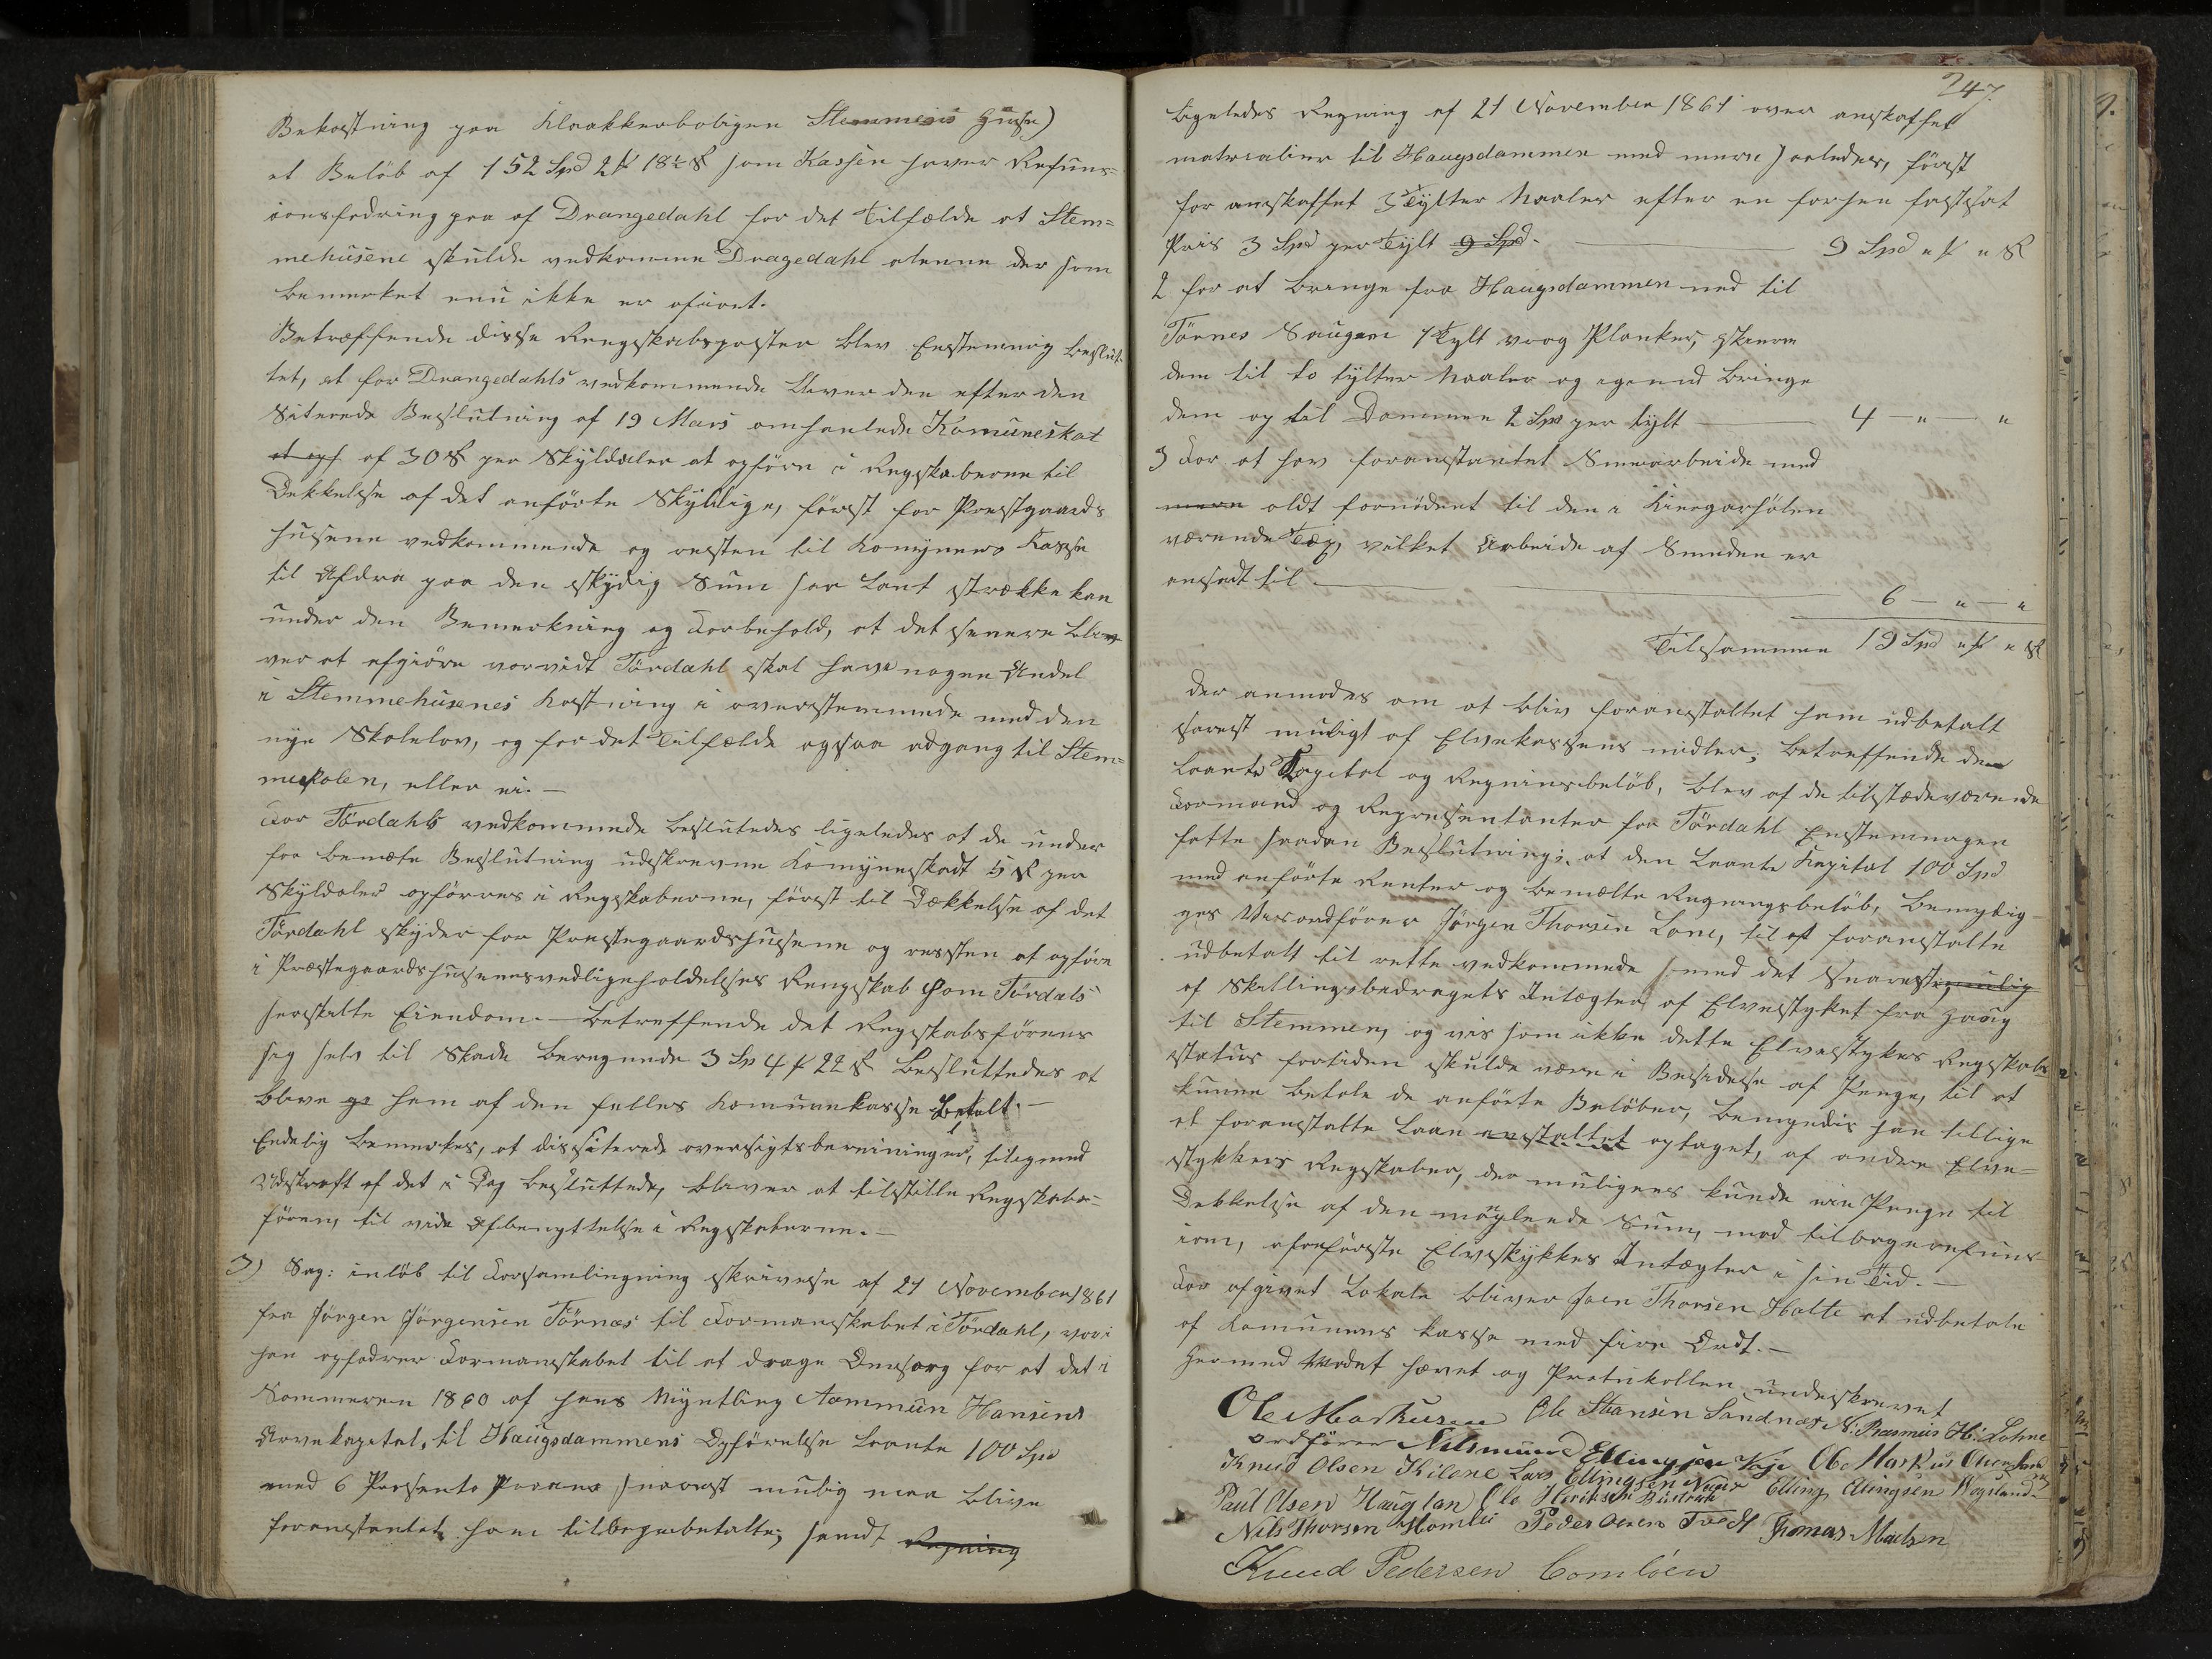 Bekostning paa Klokkerboligen Stemmens Huse)
et Beløb af 152 Spd 2 ₰ 18½ ß som Kassen haver Refuns=
ionsfodring paa af Drangedahl for det Tilfælde at Stem=
mehusene skulde vedkomme Dragedahl alenne der som
bemerket enu ikke er afgjort.
Betræffende disse Rengskabsposter blev Enstemmig beslut=
tet, at for Drangedahls vedkommende bliver den efter den
Siterede Beslutning af 19 Mars omhanlede Komuneskat
af 30 ß per Skyldaler at opføre i Regskaberne til
Dekkelse af det anførte Skyldige, først for Prestgaards
husene vedkommende og resten til Komynens Kasse
til Afdra paa den skydig Sum saa langt strække kan
under den Bemerkning og Forbehold, at det senere bli=
ver at afgiøre vorvidt Tørdahl skal have nogen Andel
i Stemmehusenes Kostning i overstemmede med den
nye Skolelov, og for det Tilfælde ogsaa adgang til Stem=
meskolen, eller ei. —
For Tørdahls vedkommede besluttedes ligeledes at de under
for bemæte Beslutning udskrevne Komyneskadt 5 ß per
Skyldaler opførres i Regskaberne, først til Dækkelse af det
Tørdahl skyder for Prestegaardshusene og resten at opføre
i Præstegaardshusenes vedligeholdelses Rengskab som Tørdals
serskilte Eiendom. — Betreffende det Regskabsførens
sig selv til Skade beregnede 3 Sp 4 ₰ 22 ß Besluttedes at
blive ham af den felles Komunekasse Betalt. —
Endelig bemerkes, at dissiterede oversigtsberninger, tilligmed
Udskraft af det i Dag besluttede, bliver at tilstille Regskabs=
føren, til vide Afbenyttelse i Regskaberne. —
3) Sag: inløb til Forsamlingning skrivelse af 21 November 1861
fra Jørgen Jørgensen Tørnæs til Formanskabet i Tørdahl, vori
han opfodrer Formanskabet til at drage Omsorg for at det i
Sommeren 1860 af hans Myntling Aammun Hansens
Arvekapital, til Haugsdammens Opførelse laante 100 Spd
med 6 Persents snarest mulig maa blive
foranstantet ham tilbagebetalte; samt Regning
247.
ligeledes Regning af 21 November 1861 over anskaffet
matrialier til Haugsdammen med mere saaledes, først
for anskaffet 3 Tylter Maaler efter en forhen fastsat
Pris 3 Spd per Tylt 9 Spd. — 9 Spd " ₰ " ß
2 for at bringe fra Haugsdammen ned til
Tørnes Saugen 1 Tylt vrag Planker, skjerre
dem til to tylter Maaler og igjend bringe
dem op til Dammen 2 Spd per tylt — 4 — " — "
3 For at hav foranstantet Smearbeide med
mere aldt fornødent til den i Kiregarhølen
værende Tæg, vilket Arbeide af Smeden er
ansadt til — 6 — " — "
Tilsammen 19 Spd " ₰ " ß
der anmodes om at bliv foranstaltet ham udbetalt
snarest muligt af Elvekassens midler; betreffende den
laante Kapital og Regninsbeløb, blev af de tilstædeværende
Formænd og Representanter for Tørdahl Enstemmigen
fatte saadan Beslutning; at den Laante Kapital 100 Spd
med anførte Renter og bemælte Regningsbeløb, bemydig
ges Viseordfører Jørgen Thorsen Lone, til at foranstalte
udbetalt til rette vedkommede med det snarest mulig
af Skillingsbedragets Intægter af Elvestyket fra Haug
til Stemmen, og vis som ikke dette Elvestykes Regskabs
status fortiden skulde være i Besidelse af Penge, til at
kunne betale de anførte Beløber, bemyndis han tillige
at foranstalte Laan anstaltet optaget, af andre Elve=
stykkers Regskaber, der muligens kunde eie Penge til
Dekkelse af den manglende Sum, mod tilbagerefuns
ion, af anførste Elvestykkes Intægter i sin Tid. —
For afgivet Lokale bliver Joen Thorsen Holte at udbetale
af Komunens kasse med fire Ordt. —
Hermed Mødet hævet og Protukollen underskrevet
Ole Markusen Ole Stiansen Sandnæs N. Rasmus H. Lohne
ordfører Nilsmund Ellingsen Voje Ole Markus Olsen
Knud Olsen Kilene Lars Ellingsen Elling Ellingsen Wogsland
Paul Olsen Hauglan Ole
Nils Thorsen Homlei Peder Olsen Tvedt Thomas Madsen
Knud Pedersen Bomløen